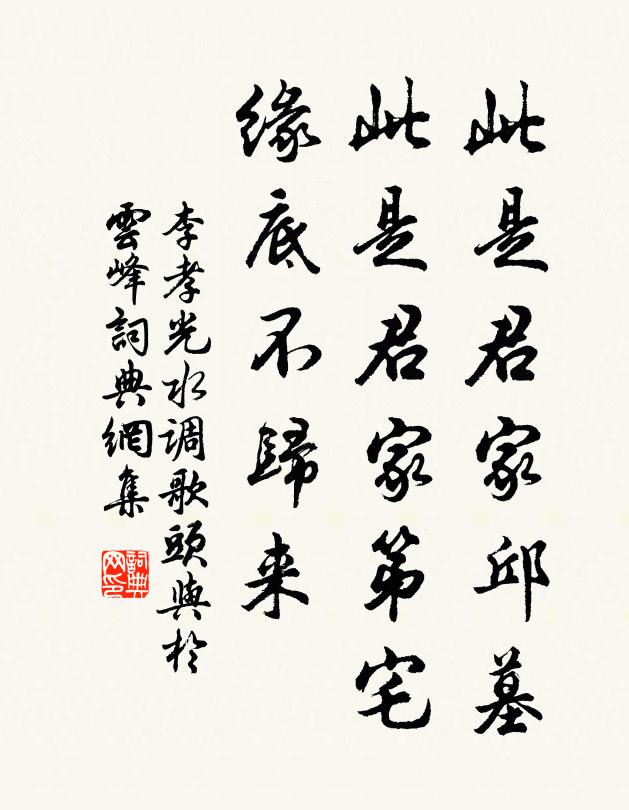 此是君家邱墓
此是君家第宅
缘底不歸来
李孝光水调歌頭與於
雲峰詞典網集
詞典网印